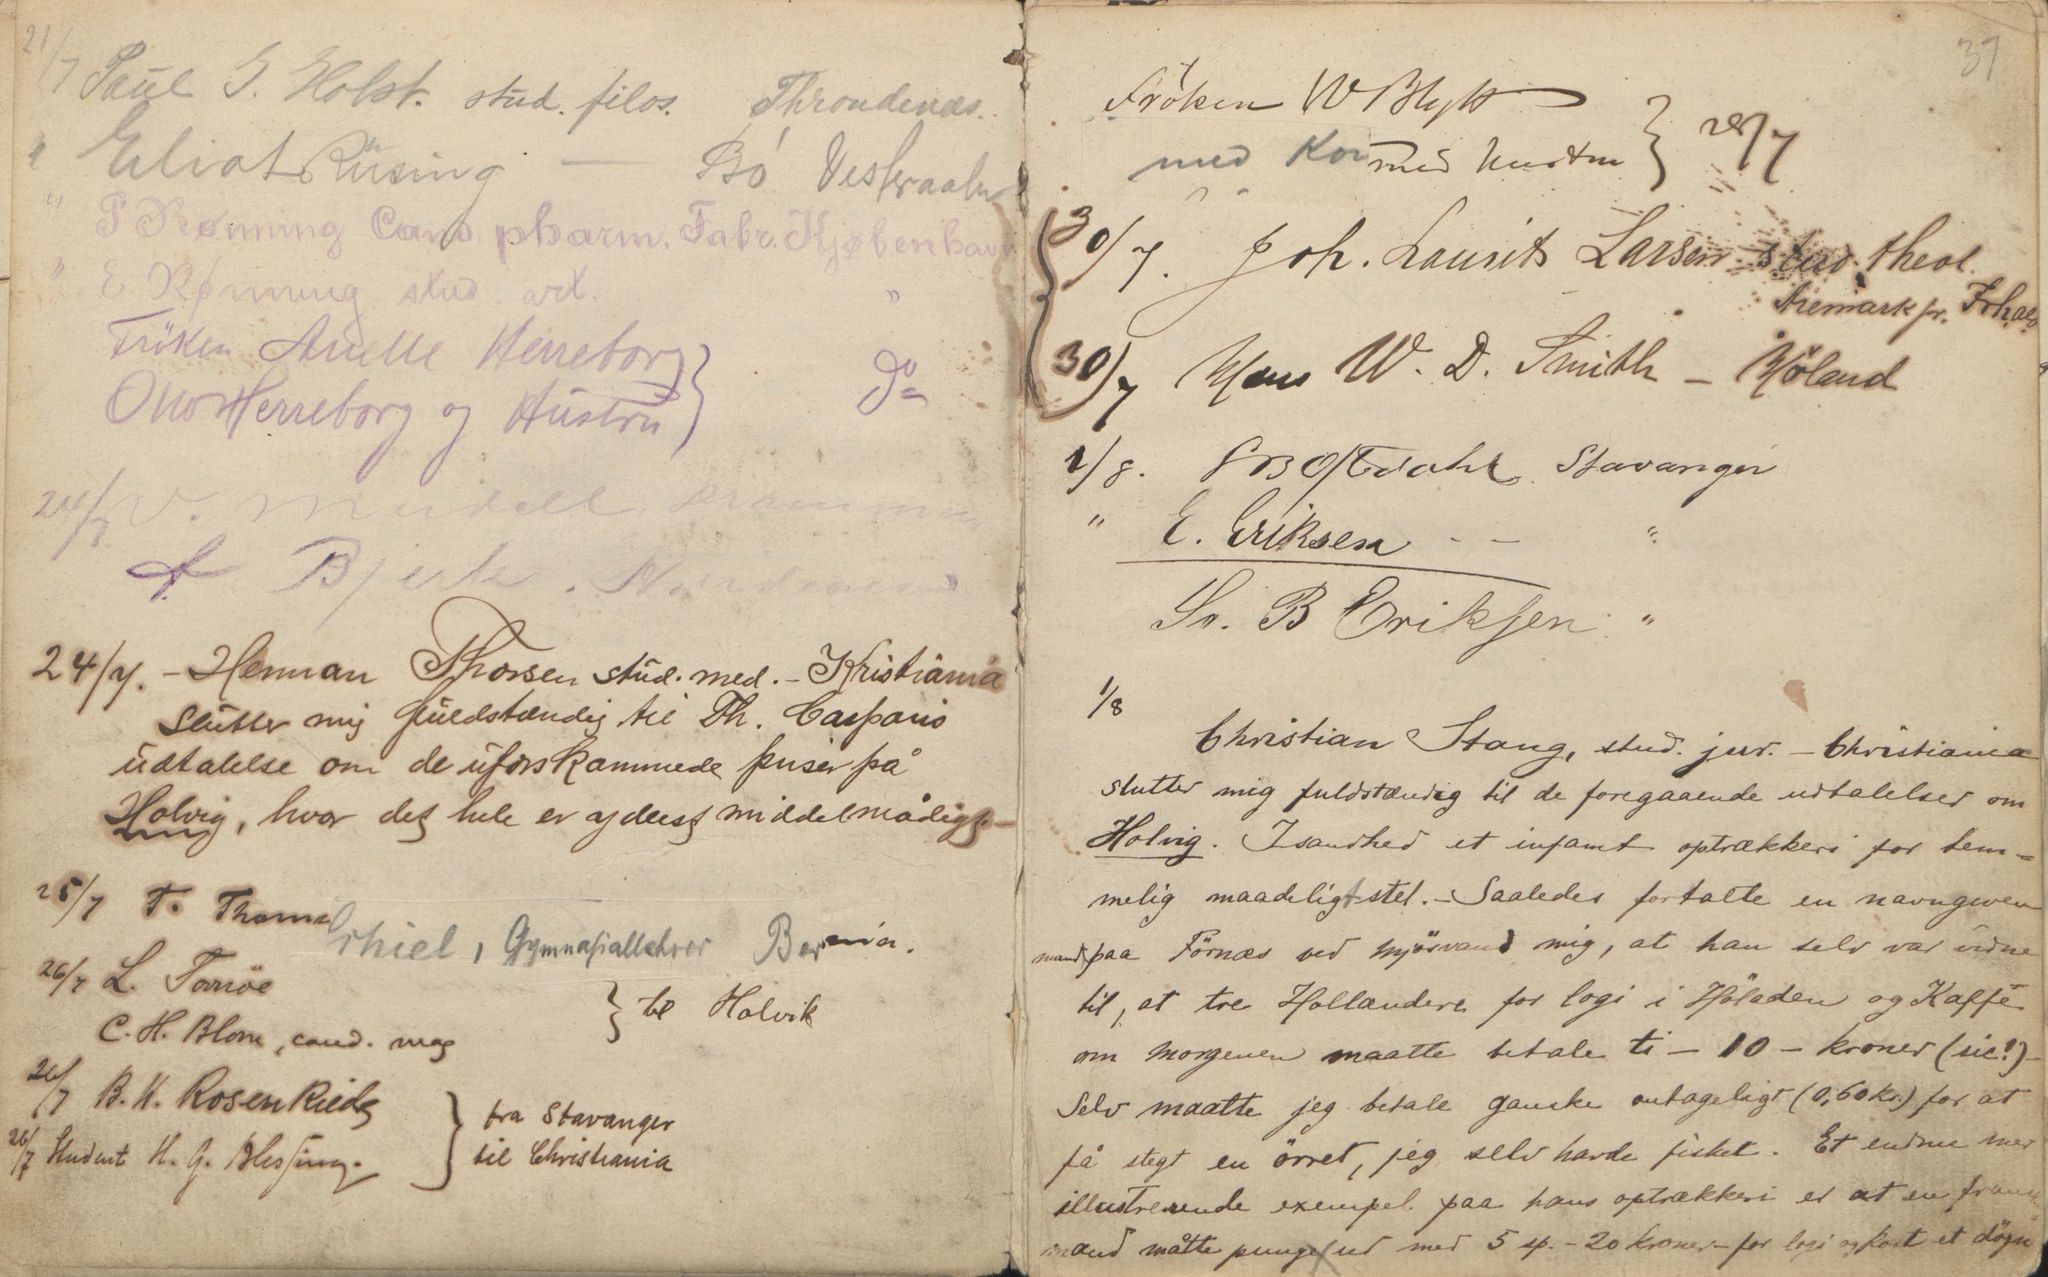 21/7 Paul G. Holst. stud. filos. Throndenæs.
" Eiliot Rüsing — Bö Vesteraalen
" P Rønning Cand. pharm. Fabr. Kjøbenhavn
" E Rønning stud. art. "
Fröken Anette Herreborg
Otto Herreborg og Hustru } do
24/7 V.
A Bjerk.
24/7. – Herman Thorsen stud. med. – Kristiania
slutter mig fuldstændig til Th. Casparis
udtalelse om de uforskammede priser på
Holvig, hvor det hele er yderst middelmådigt. –
25/7 T. Thoms
Thiel, Gymnasiallehrer
26/7 L. Torröe
C. H. Blom, cand. mag } til Holvik
26/7 B. K. Rosenkilde
26/7 Student H. G. Blessing. } fra Stavanger
til Christiania
37
Fröken W Blytt
med Kone med Hustru } 28/7
30/7. Joh. Laurits Larsen stud. theol.
Aremark pr. Frhald
30/7 Hans W. D. Smith – Höland
1/8. Stavanger
" E. Eriksen - - "
Sv. B Eriksen "
1/8
Christian Stang, stud. jur. – Christiania
slutter mig fuldstændig til de foregaaende udtalelser om
Holvig. Isandhed et infamt optrækkeri for tem=
melig maadeligt stel. – Saaledes fortalte en navngiven
mand paa Förnæs ved Mjösvand mig, at han selv var vidne
til, at tre Hollændere for logi i Höladen og Kaffe
om morgenen maatte betale ti – 10 – kroner (sic!) –
Selv maatte jeg betale ganske antageligt (0,60 kr.) for at
få stegt en örret, jeg selv havde fisket. Et endnu mer
illustrerende exempel paa hans optrækkeri er at en fransk=
mand måtte punge ud med 5 sp. – 20 kroner – for logi og kost et døgn